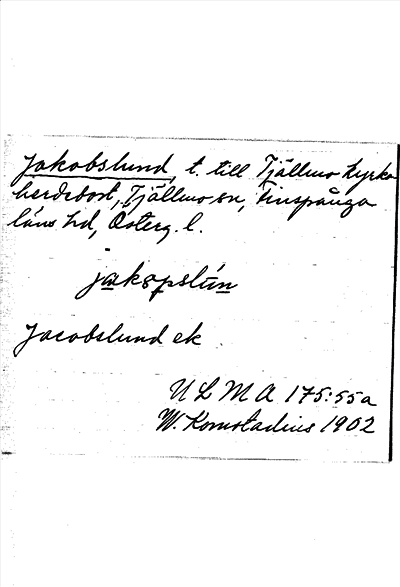 Jakobslund, t. till Tjällmo kyrko
herdebost, Tjällmo sn, Finspånga
läns hd, Österg. l.
jakɔpslún
Jacobslund ek
ULMA 175:55a
W. Komstadius 1902